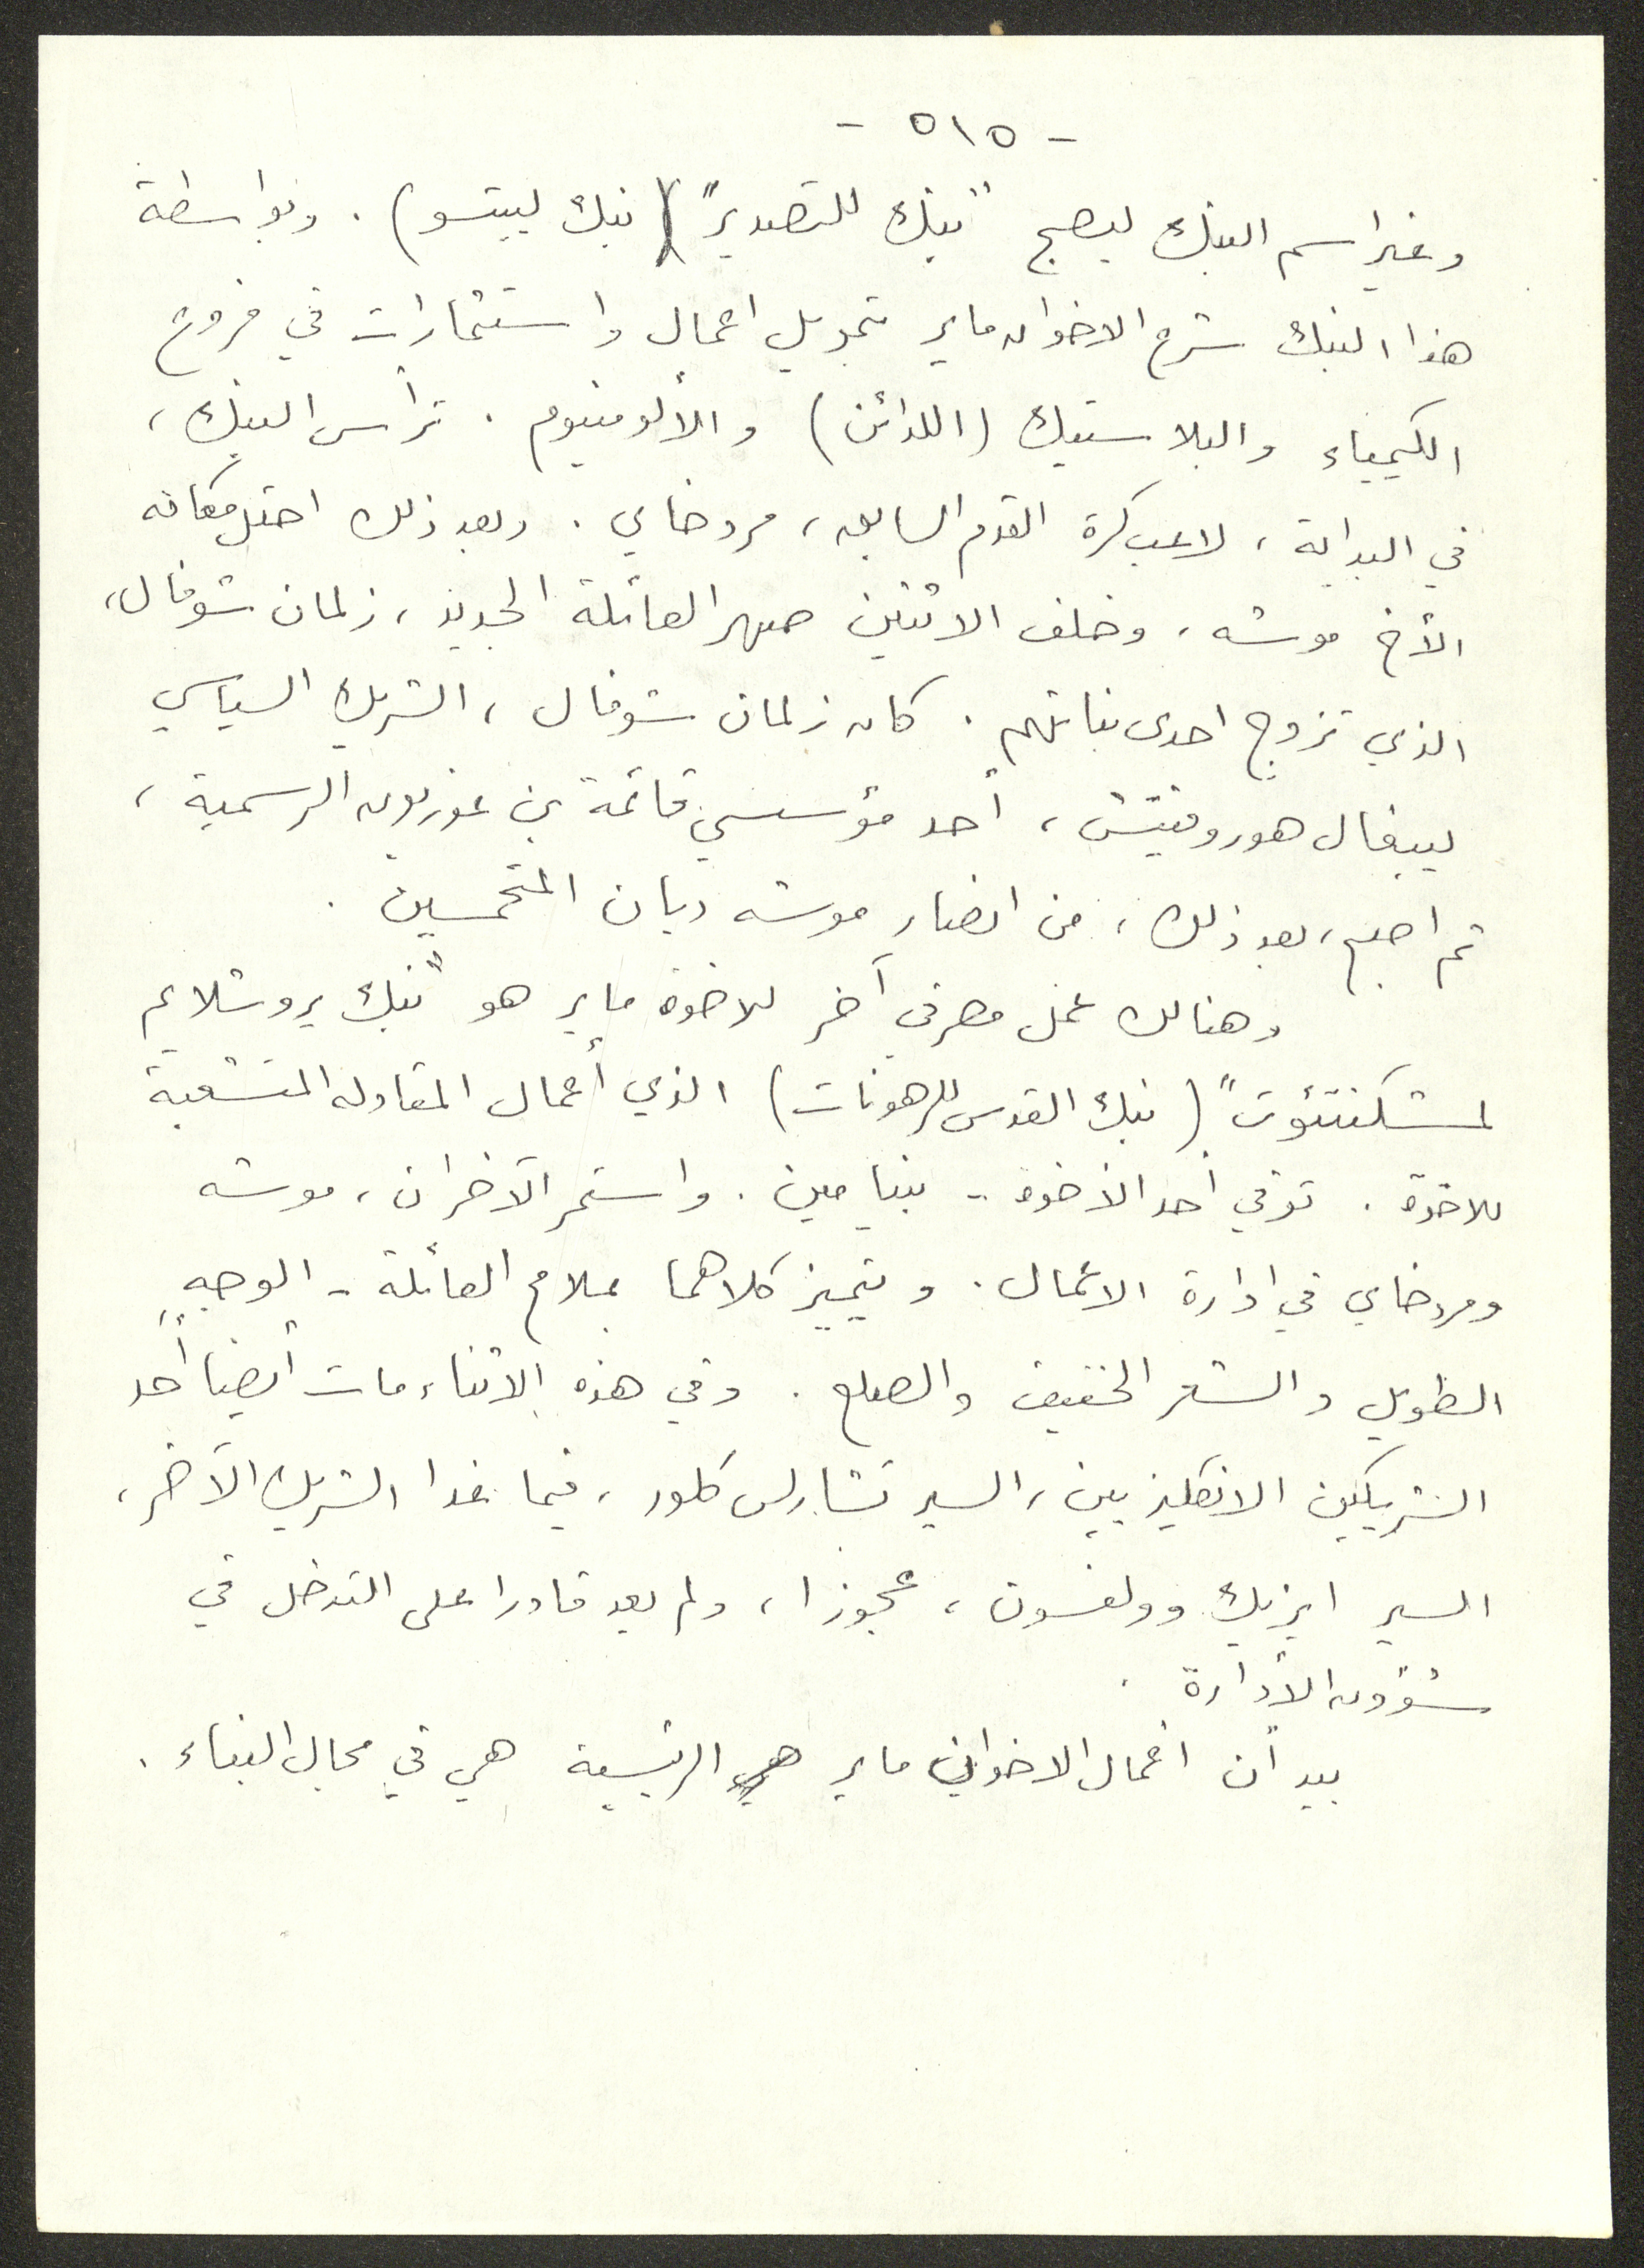 - ٥١٥ -
وغير اسم البنك ليصبح "بنك للتصدير" (بنك ليتسو) . وبواسطة
هذا البنك شرع الاخوان ماير تمويل اعمال واستثمارات في فروع
الكيمياء والبلاستيك (اللدائن) والألومنيوم . ترأس البنك ،
في البداية ، لاعب كرة القدم السابق ، مردخاي . وبعد ذلك احتل مكانه
الأخ موشه ، وخلف الاثنين صهر العائلة الجديد ، زلمان شوفال ،
الذي تزوج احدى بناتهم . كان زلمان شوفال ، الشريك السياسي
ليبغال هوروفيتش ، أحد مؤسسي قائمة بن غوريون الرسمية ،
ثم اصبح ، بعد ذلك ، من انصار موشه ديان المتحمسين .
وهنالك عمل مصرفي آخر للاخوة ماير هو "بنك يروشلايم
لمشكنتئوت" (بنك القدس للرهونات) الذي أعمال المقاوله المتشعبة
للاخوة . توفي أحد الاخوة - بنيامين . واستمر الآخران ، موشه
ومردخاي في ادارة الاعمال . ويتميز كلاهما بملامح العائلة - الوجه
الطويل والشعر الخفيف والصلع . وفي هذه الاثناء مات أيضاً أحد
الشريكين الانكليزيين ، السير تشارلس كلور ، فيما غدا الشريك الآخر ،
السير ايزيك وولفسون ، عجوزا ، ولم يعد قادرا على التدخل في
شؤون الأدارة .
بيد أن اعمال الاخوان ماير الرئيسية هي في مجال البناء .